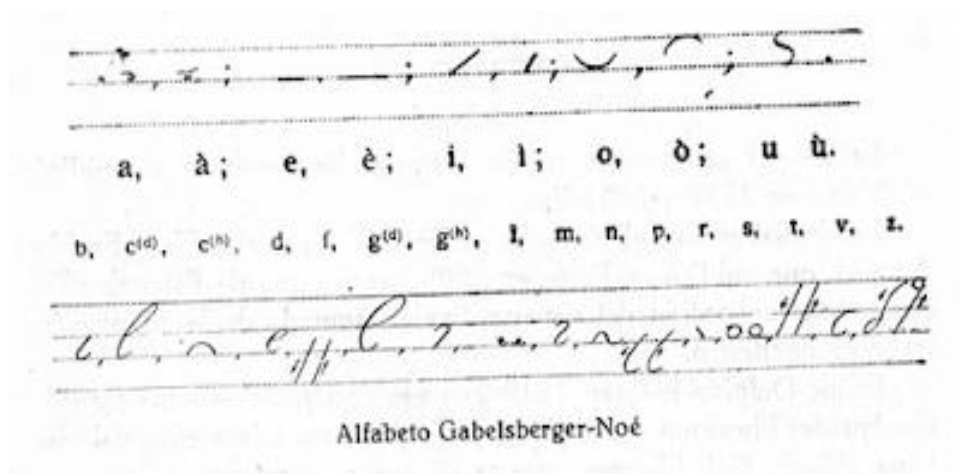 a, à; e, è; i, ì; o, ò; u ù.
b, c(d), c(h), d, f, g(d), g(h), l, m, n, p, r, s, t, v, z.
Alfabeto Gabelsberger-Noé